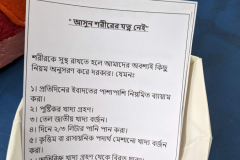 " আসুন শরীরের যত্ন নেই"
শরীরকে সুস্থ রাখতে হলে আমাদের অবশ্যই কিছু
নিয়ম অনুসরণ করে দরকার। যেমনঃ
১। প্রতিদিনের ইবাদতের পাশাপাশি নিয়মিত ব্যায়াম
করা।
২। পুষ্টিকর খাদ্য গ্রহণ।
৩। তেল জাতীয় খাদ্য বর্জন।
৪। দিনে ২/৩ লিটার পানি পান করা।
৫। কৃত্তিম বা রাসায়নিক পদার্থ মেশানো খাদ্য বর্জন
করা।
৬। অতিরিক্ত খাদ্য গ্রহণ থেকে বিরত থাকা।